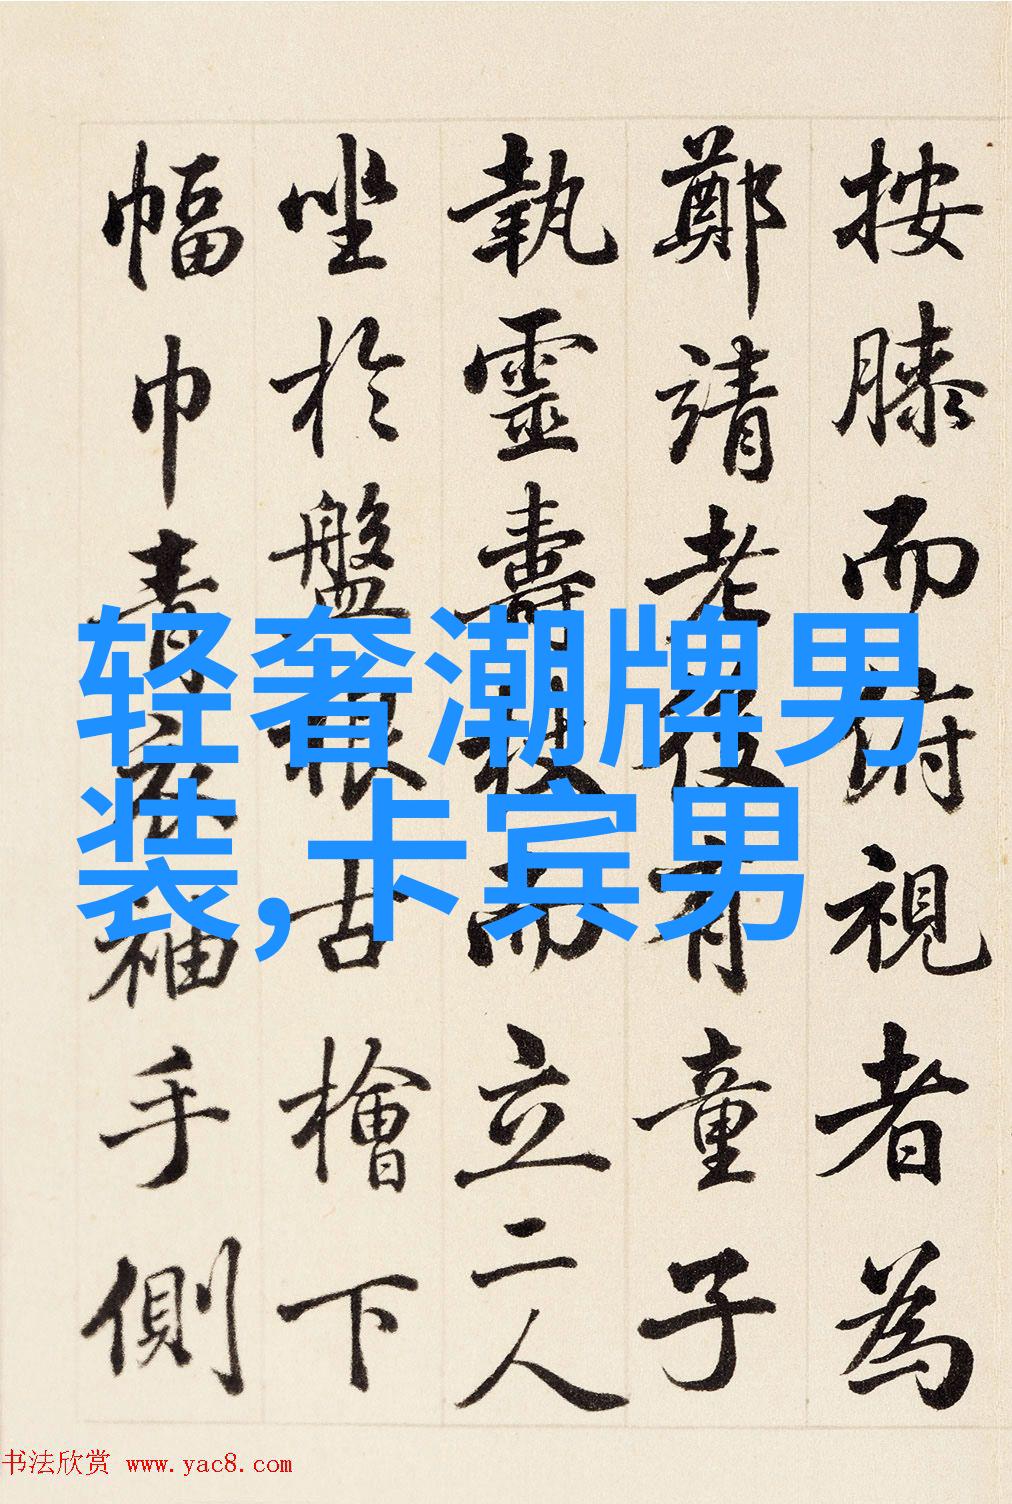 按膝而俯視者為
鄭靖老後有童子
執靈壽杖而立二人
坐於盤根古檜下
幅巾青衣袖手側
轻奢潮牌男
装,卡宾男
书法欣赏 www.yac8.com